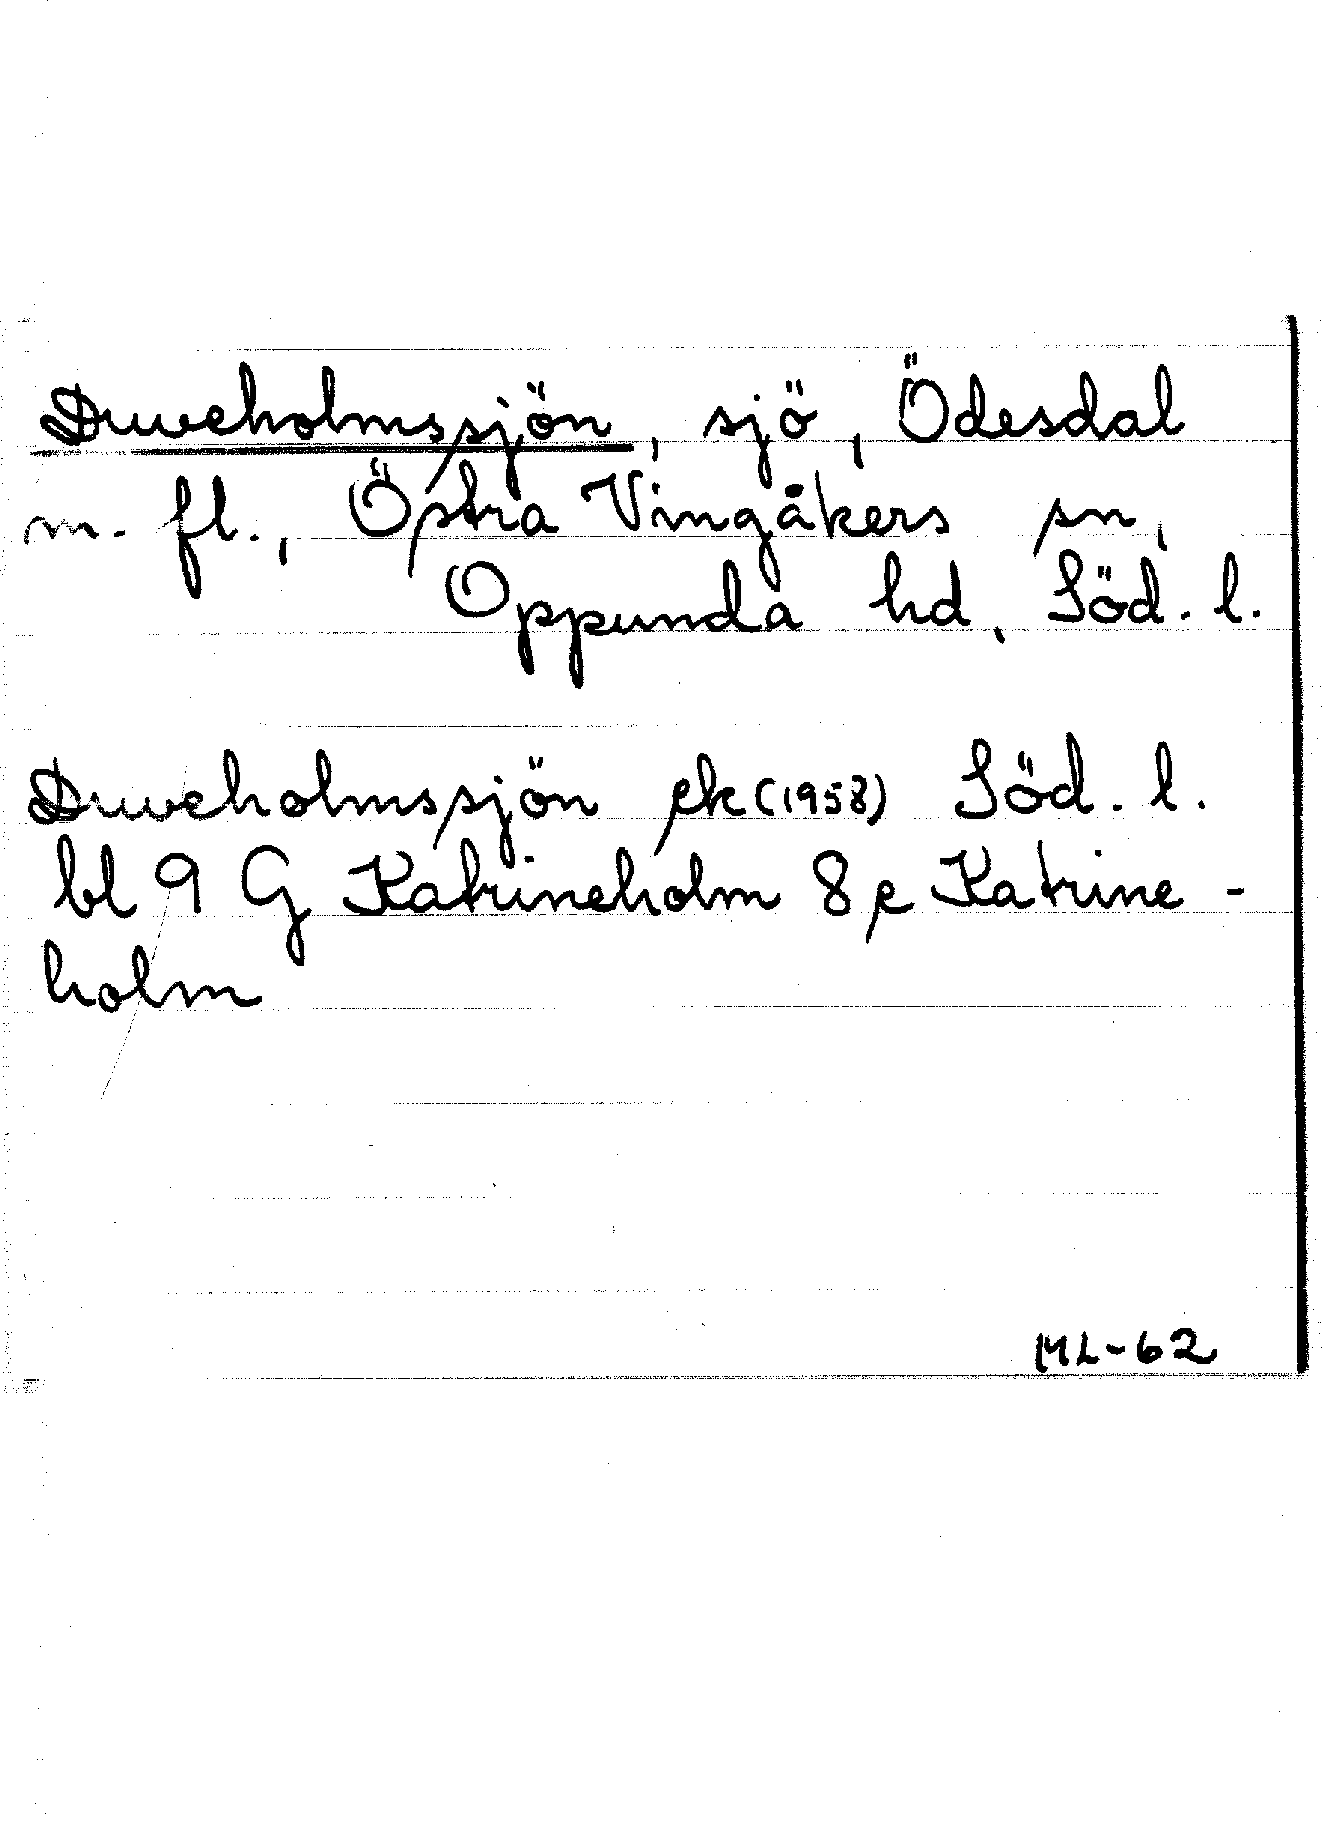 Duveholmssjön, sjö, Ödesdal
m. fl., Östra Vingåkers sn,
Oppunda hd, Söd. l.
Duveholmssjön ek (1958) Söd. l.
bl 9 G Katrineholm 8 e Katrine-
holm
ML-62